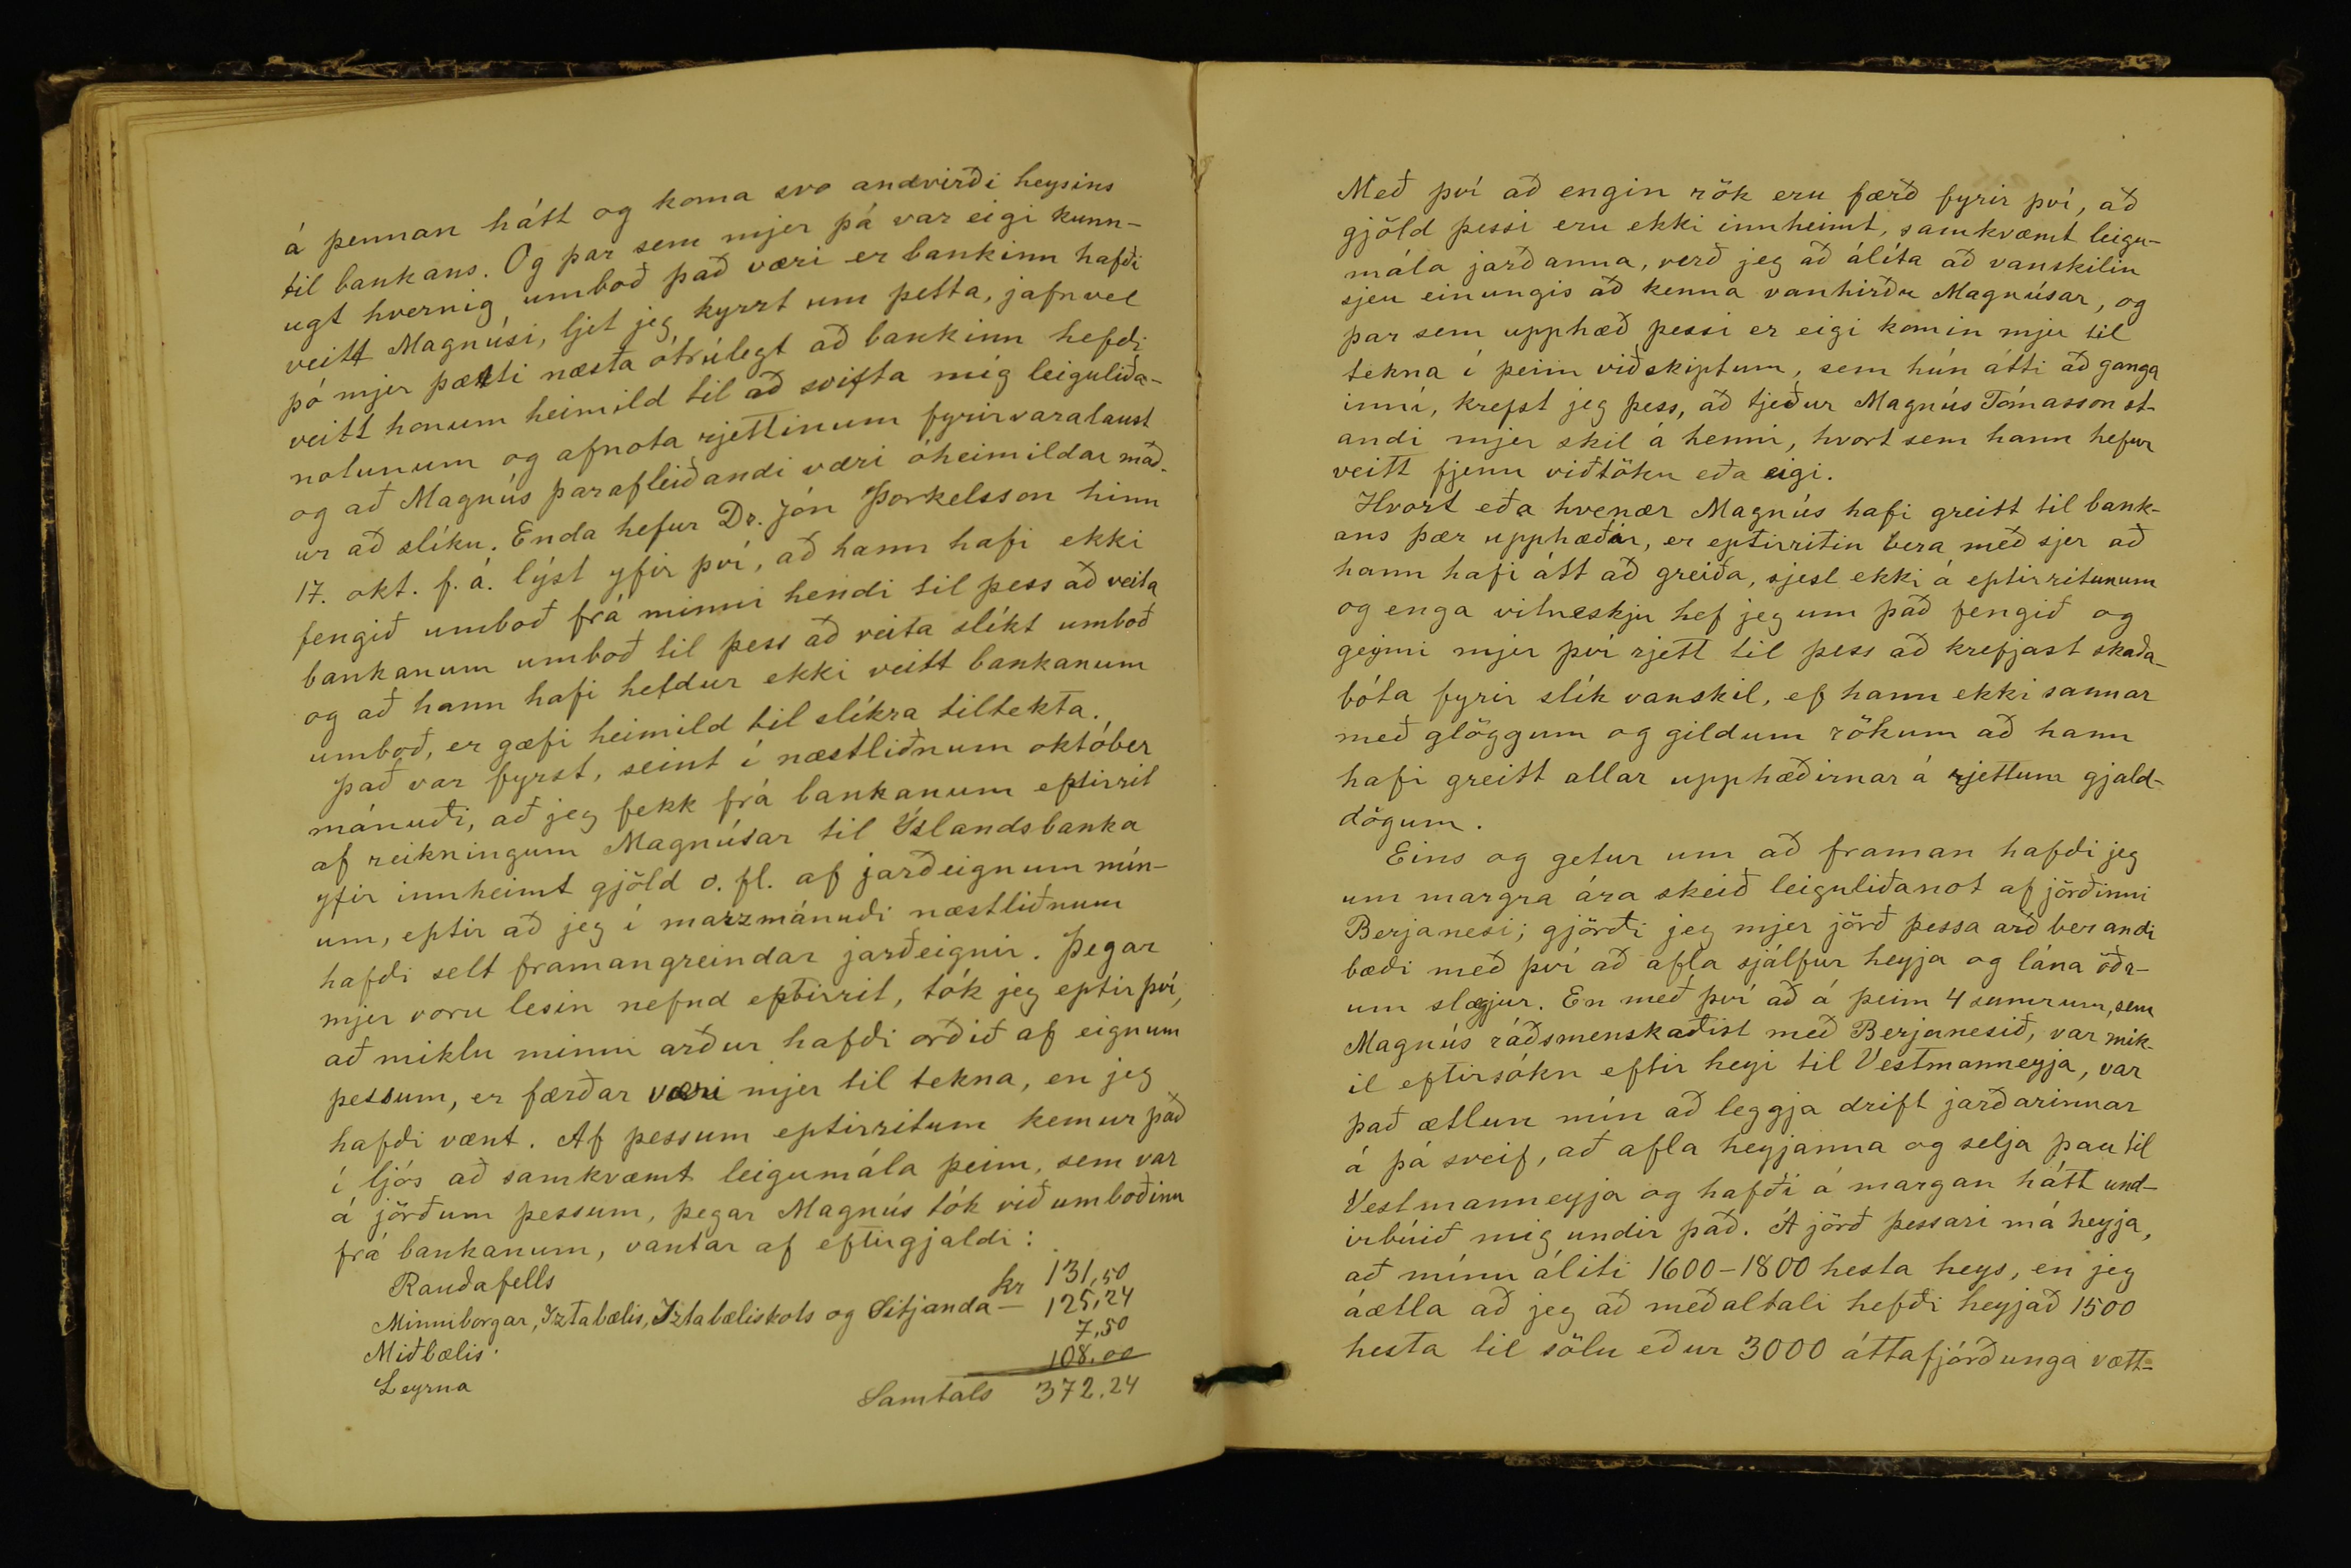 á þennan hátt og koma svo andvirði heysins
til bankans. Og þar sem mjer þá var eigi kunn-
ugt hvernig umboð það væri er bankinn hafði
veitt Magnúsi, ljet jeg kyrrt um þetta, jafnvel
þó mjer þætti næsta ótrúlegt að bankinn hefði
veitt honum heimild til að svifta mig leiguliða-
notunum og afnota rjettinum fyrirvaralaust
og að Magnús þarafleiðandi væri óheimildar mað-
ur að slíku. Enda hefur Dr. Jón Þorkelsson hinn
17. okt. f. á. lýst yfir því, að hann hafi ekki
fengið umboð frá minni hendi til þess að veita
bankanum umboð til þess að veita slíkt umboð
og að hann hafi heldur ekki veitt bankanum
umboð, er gæfi heimild til slíkra tiltekta.
Það var fyrst, seint í næstliðnum október
mánuði, að jeg fekk frá bankanum eptirrit
af reikningum Magnúsar til Íslandsbanka
yfir innheimt gjöld o. fl. af jarðeignum mín-
um, eptir að jeg í marzmánuði næstliðnum
hafði selt framangreindar jarðeignir. Þegar
mjer voru lesin nefnd eptirrit, tók jeg eptir því,
að miklu minni arður hafði orðið af eignum
þessum, er færðar væri mjer til tekna, en jeg
hafði vænt. Af þessum eptirritum kemur það
í ljós að samkvæmt leigumála þeim, sem var
á jörðum þessum, þegar Magnús tók við umboðinu
frá bankanum, vantar af eftirgjaldi:
Rauðafells kr 131,50
Minniborgar, Yztabælis, Yztabæliskots og Sitjanda — 125,24
Miðbælis 7,50
Leyrna 108.00
Samtals 372.24
Með því að engin rök eru færð fyrir því, að
gjöld þessi eru ekki innheimt, samkvæmt leigu-
mála jarðanna, verð jeg að álíta að vanskilin
sjeu einungis að kenna vanhirðu Magnúsar, og
þar sem upphæð þessi er eigi komin mjer til
tekna í þeim viðskiptum, sem hún átti að ganga
inní, krefst jeg þess, að tjeður Magnús Tómasson st-
andi mjer skil á henni, hvort sem hann hefur
veitt fjenu viðtöku eða eigi.
Hvort eða hvenær Magnús hafi greitt til bank-
ans þær upphæðir, er eptirritin bera með sjer að
hann hafi átt að greiða, sjest ekki á eptirritunum
og enga vitneskju hef jeg um það fengið og
geymi mjer því rjett til þess að krefjast skaða-
bóta fyrir slík vanskil, ef hann ekki sannar
með glöggum og gildum rökum að hann
hafi greitt allar upphæðirnar á rjettum gjald-
dögum.
Eins og getur um að framan hafði jeg
um margra ára skeið leiguliðanot af jörðinni
Berjanesi; gjörði jeg mjer jörð þessa arð berandi
bæði með því að afla sjálfur heyja og lána öðr-
um slægjur. En með því að á þeim 4 sumrum, sem
Magnús ráðsmenskaðist með Berjanesið, var mik-
il eftirsókn eftir heyi til Vestmanneyja, var
það ætlun mín að leggja drift jarðarinnar
á þá sveif, að afla heyjanna og selja þau til
Vestmanneyja og hafði á margan hátt und-
irbúið mig undir það. Á jörð þessari má heyja,
að mínu áliti 1600-1800 hesta heys, en jeg
áætla að jeg að meðaltali hefði heyjað 1500
hesta til sölu eður 3000 áttafjórðunga vætt-